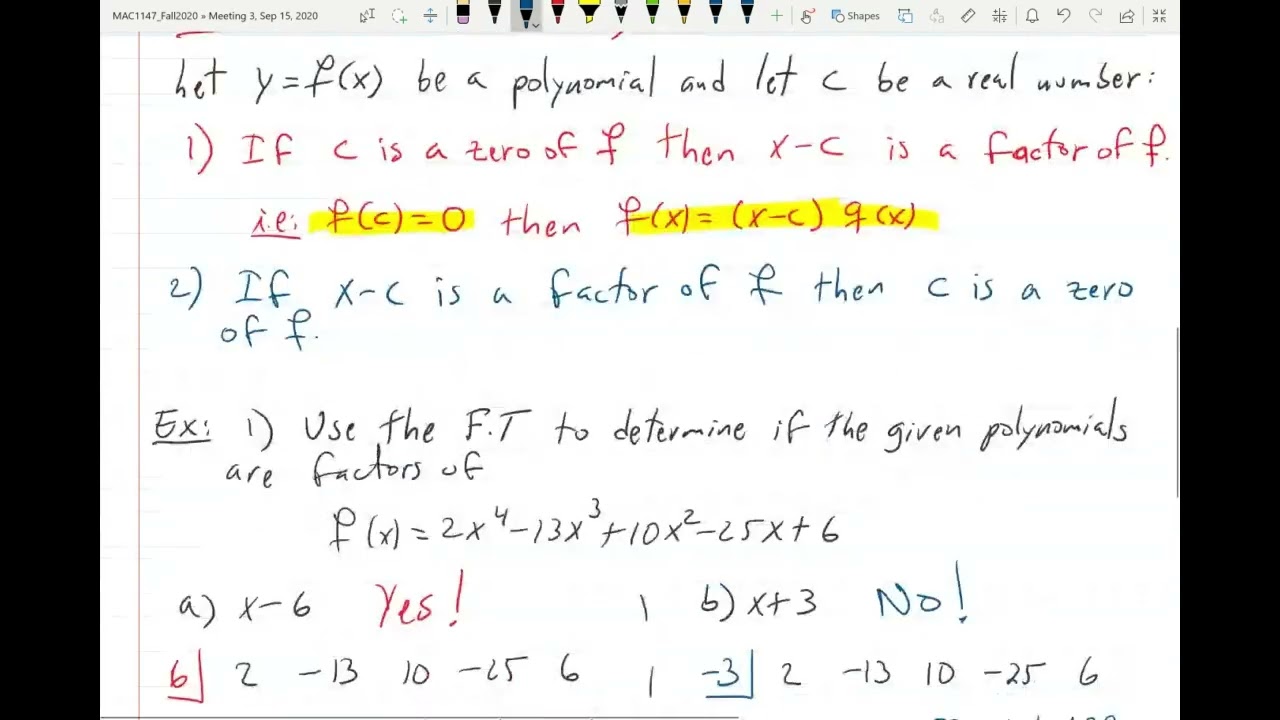 MAC1147_Fall2020 » Meeting 3, Sep 15, 2020
Shapes
Let y=f(x) be a polynomial and let c be a real number:
1) If c is a zero of f then x-c is a factor of f.
i.e: f(c)=0 then f(x)=(x-c) q(x)
2) If x-c is a factor of f then c is a zero
of f.
Ex: 1) Use the F.T to determine if the given polynomials
are factors of
f(x)=2x⁴-13x³+10x²-25x+6
a) x-6 Yes! b) x+3 No!
6 2 -13 10 -25 6 -3 2 -13 10 -25 6